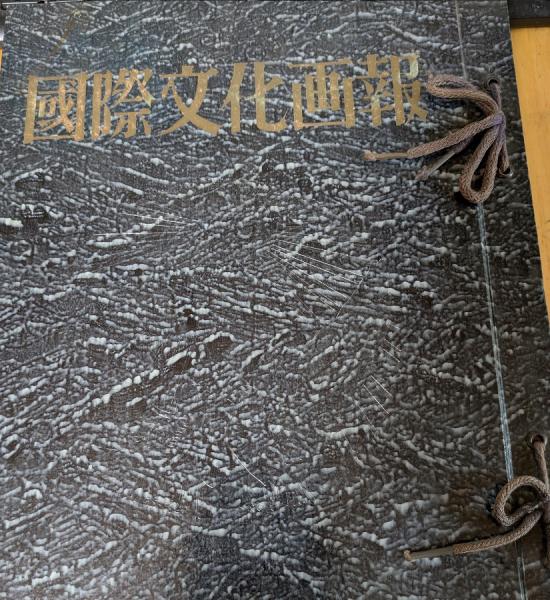 國際文化画報